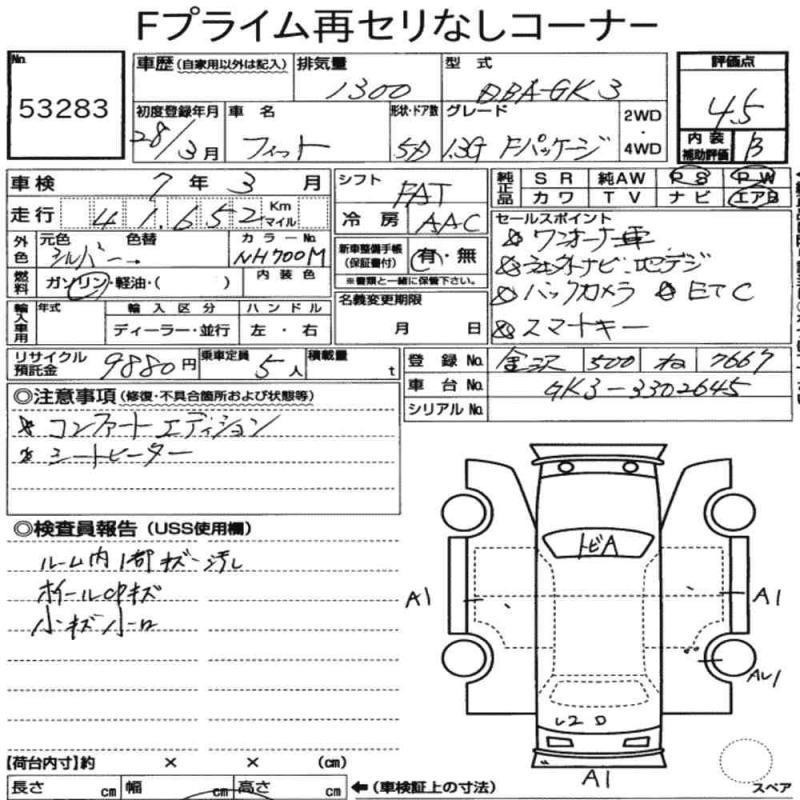 Fプライム再セリなしコーナー
No. 53283
車歴 (自家用以外は記入) 排気量 1300 型式 DBA-GK3
評価点 4.5
内装補助評価 B
初度登録年月 28/3月 車名 フィット 形状・ドア数 5D グレード 13G Fパッケージ 2WD・4WD
車検 7年 3月
走行 41,652 Km マイル
シフト FAT
冷房 AAC
純正品 SR 純AW PS PW
カワ TV ナビ エアB
外色 元色 シルバー 色替 カラーNo. NH700M
燃料 ガソリン・軽油・( ) 内装色
新車整備手帳(保証書付) 有・無
※書類と一緒に保管下さい。
セールスポイント
ワンオーナー車
社外ナビ、地デジ
バックカメラ ETC
スマートキー
輸入車用 年式 輸入区分 ハンドル
ディーラー・並行 左・右
名義変更期限 月 日
リサイクル預託金 9880円 乗車定員 5人 積載量 t
登録No. 金沢 500 ね 7667
車台No. GK3-3302645
シリアルNo.
◎注意事項 (修復・不具合箇所および状態等)
コンフォートエディション
シートヒーター
◎検査員報告 (USS使用欄)
ルーム内1部キズ汚し
ホイールCPキズ
小キズ小凹
トビA
A1
A1
AU1
A1
【荷台内寸】約 × × (cm)
長さ cm 幅 cm 高さ cm ←(車検証上の寸法)
スペア